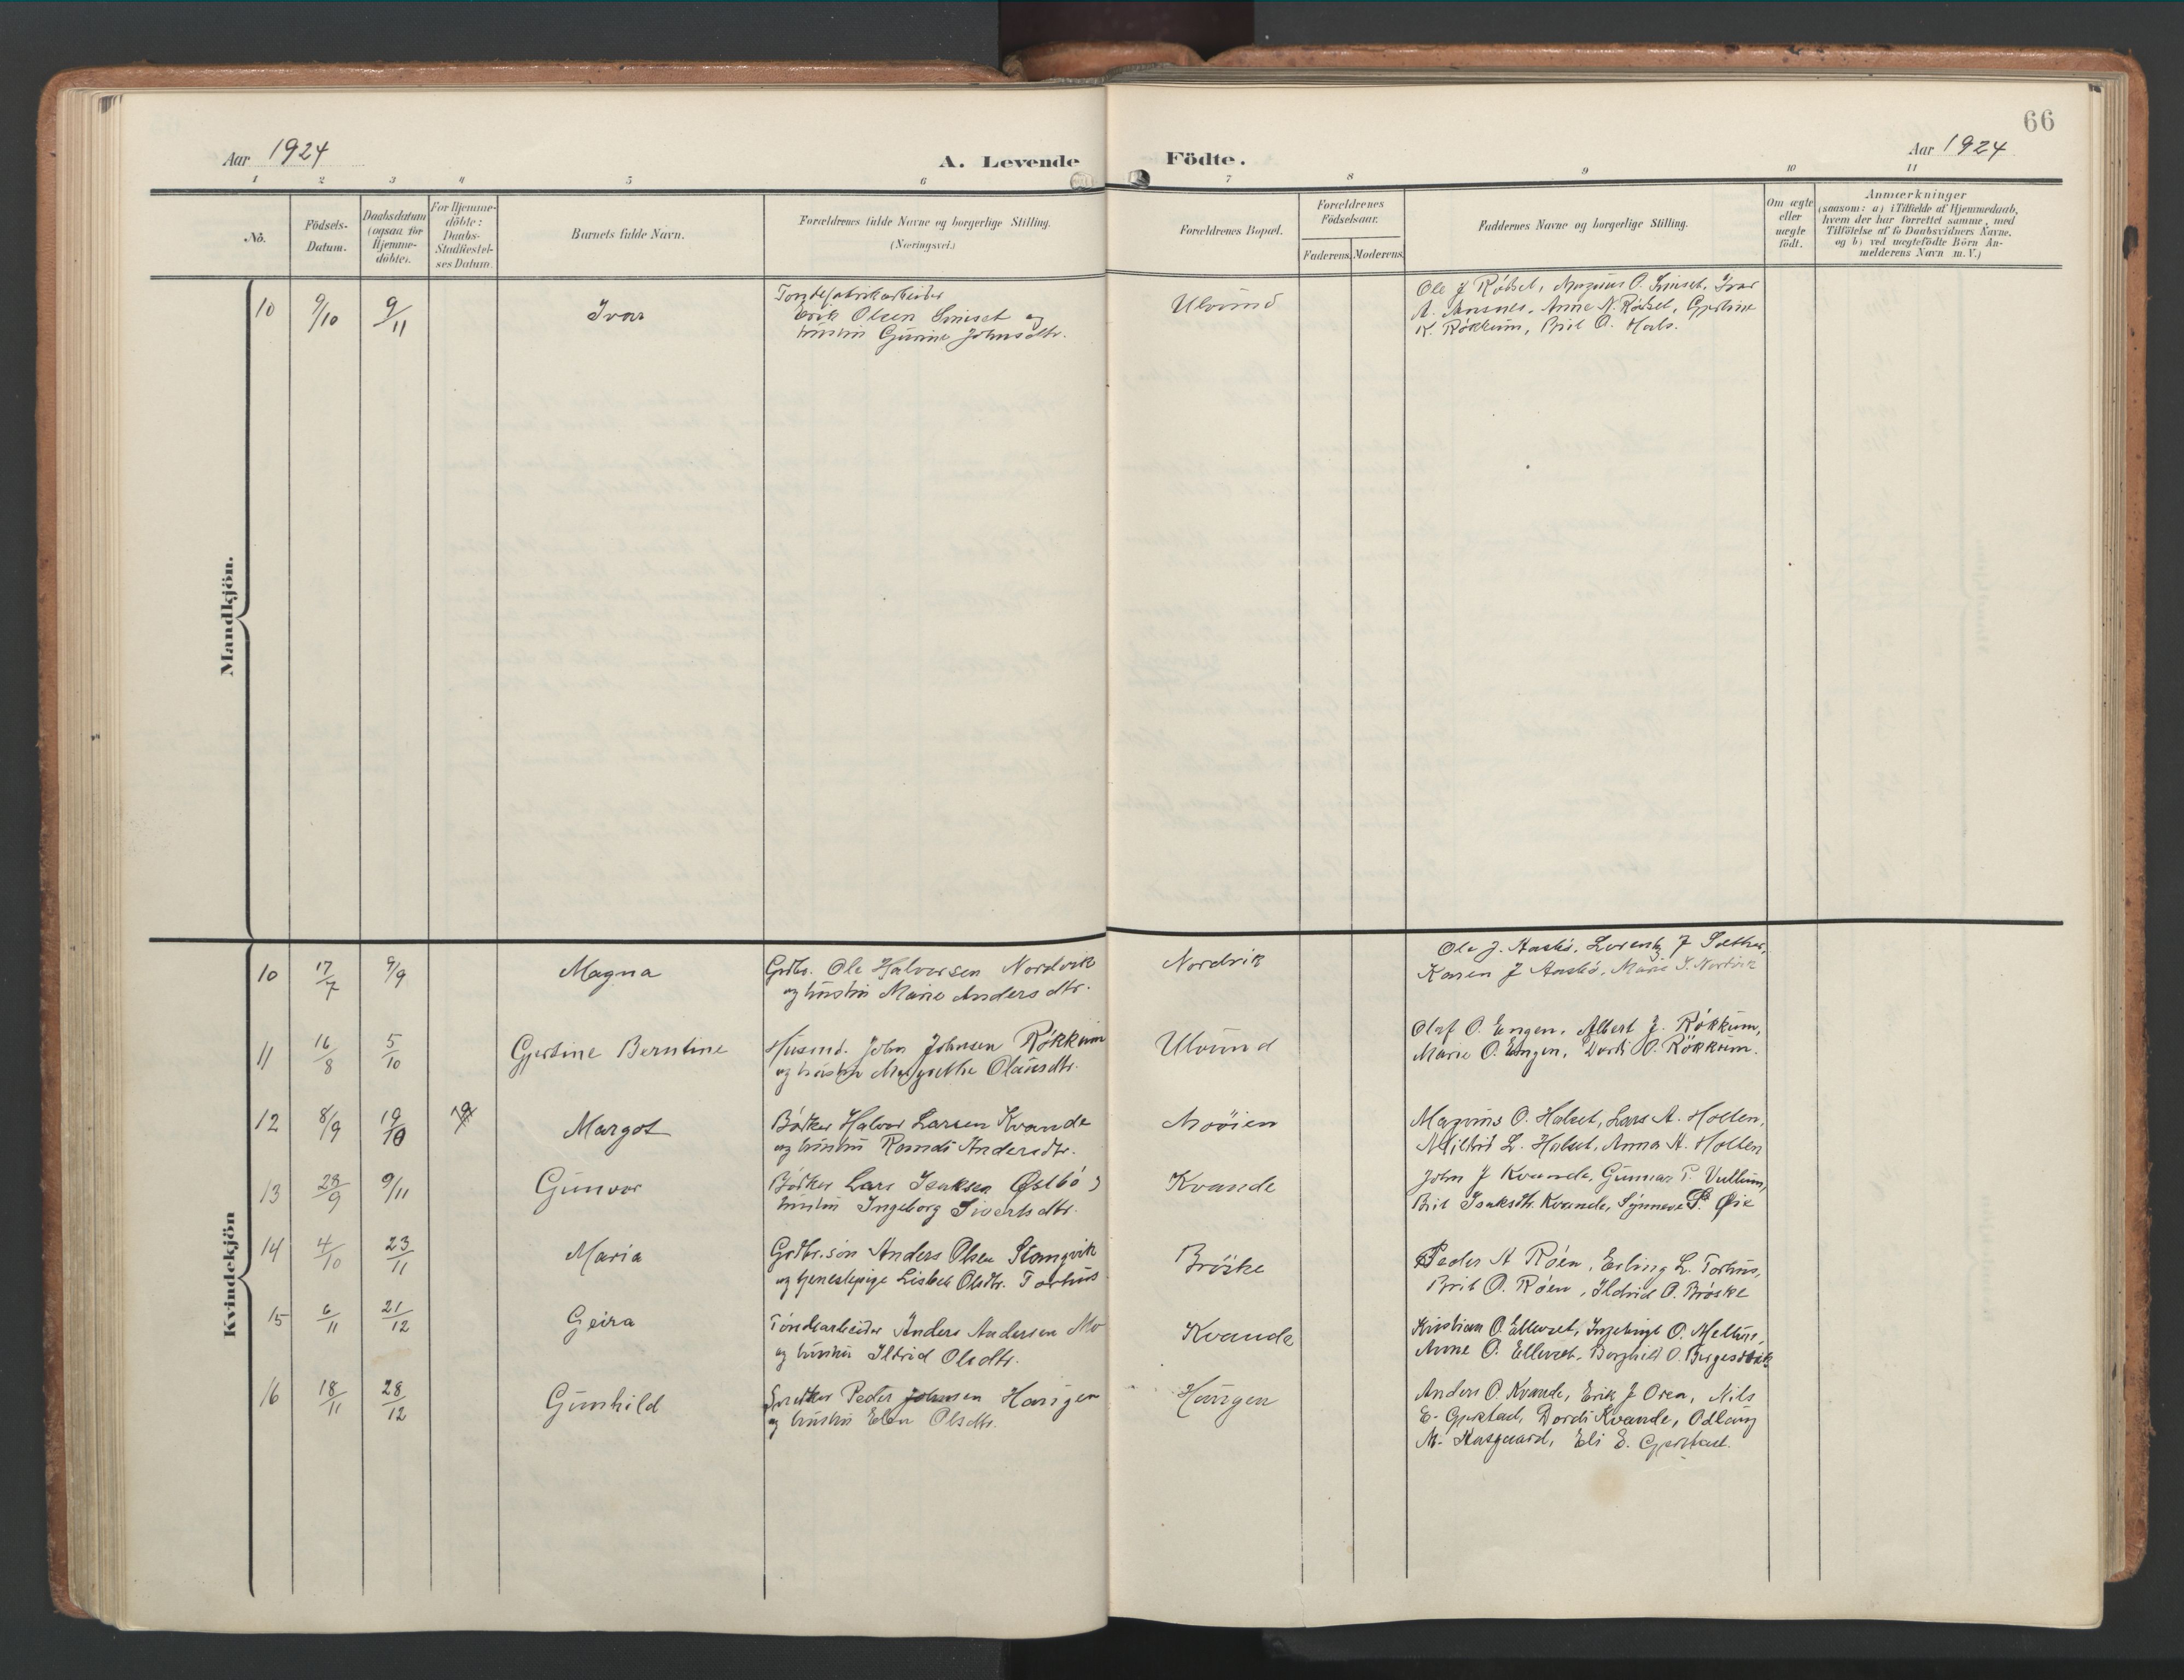 66
Aar 1924
A. Levende Födte.
Aar 1924
1 2 3 4 5 6 7 8 9 10 11
No.
Födsels-
Datum.
Daabsdatum
(ogsaa for
Hjemme-
döbte).
For Hjemme-
döbte:
Daabs-
Stadfæstel-
ses Datum.
Barnets fulde Navn.
Forældrenes fulde Navne og borgerlige Stilling.
(Næringsvei.)
Forældrenes Bopæl.
Forældrenes
Födselsaar.
Faderens. Moderens.
Faddernes Navne og borgerlige Stilling.
Om ægte
eller
uægte
födt.
Anmærkninger
(saasom: a) i Tilfælde af Hjemmedaab,
hvem der har forrettet samme, med
Tilföielse af to Daabsvidners Navne,
og b) ved uægtefödte Börn An-
melderens Navn m. V.)
Mandkjön.
10 9/10 9/11 Ivar
Tøndefabrikarbeider
Erik Olsen Smiset og
hustru Gurine Johnsdtr.
Ulvund
Ole J Rødset, Magnus O. Smiset, Ivar
A. Aasnes, Anne N. Rødset, Gjertine
K. Røkkum, Brit O. Hals.
Kvindekjön
10 17/7 9/9 Magna
Grdbr. Ole Halvorsen Nordvik
og hustru Marie Andersdtr.
Nordvik
Ole J. Aasbø, Lorentz J Sæther,
Karen J Aasbø, Marie S. Nordvik
11 16/8 5/10 Gjertine Berntine
Husmd. John Johnsen Røkkum
og hustru Margrethe Olausdtr.
Ulvund
Olaf O. Engen, Albert J. Røkkum,
Marie O. Engen, Dordi O. Røkkum.
12 8/9 19/10 Margot
Bødker Halvor Larsen Kvande
og hustru Randi Andersdtr.
Moøien
Magnus O. Halset, Lars A. Holten,
Mildrid L. Halset, Anna A. Holten
13 28/9 9/11 Gunvor
Bødker Lars Isaksen Østbø og
hustru Ingeborg Sivertsdtr.
Kvande
John J Kvande, Gunnar P. Vullum,
Brit Isaksdtr. Kvande, Synneve Øie
14 4/10 23/11 Maria
Grdbr.søn Anders Olsen Stangvik
og tjenestepige Lisbet Olsdtr. Torhus
Brøske
Peder A Røen, Erling L. Torhus,
Brit O. Røen, Ildrid O. Brøske
15 6/11 21/12 Geira
Tøndearbeider Anders Andersen Mo
og hustru Ildrid Olsdtr.
Kvande
Kristian O. Ellevset, Ingebrigt O. Melhus,
Anne O. Ellevset, Borghild O.
16 18/11 28/12 Gunhild
Peder Johnsen Haugen
og hustru Elen Olsdtr.
Haugen
Anders O. Kvande, Erik J Oren, Nils
E. Gjerstad, Dordi Kvande, Odlaug
M. Aasgaard, Eli E. Gjerstad.